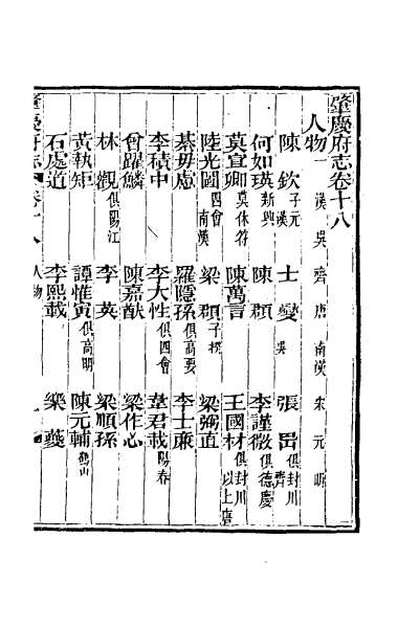 肇慶府志卷十八
人物一 漢 吳 齊 唐 南漢 宋 元 明
陳欽 子元 漢 士燮 吳 張𠱷 俱封川 齊
何如瑛 新興 陳頵 李謹微 俱德慶
莫宣卿 莫休符 陳萬言 王國材 俱封川 以上唐
陸光圖 四會 南漢 梁頵 子揆 梁弼直
綦毋慮 羅隱孫 俱高要 李士廉
李積中 李大性 俱四會 韋君載 陽春
曾躍鱗 陳嘉猷 梁作心
林觀 俱陽江 李英 梁順孫
黃執矩 譚惟寅 俱高明 陳元輔 鶴山
石處道 李熙載 樂夔
肇慶府志 卷十八 人物 一